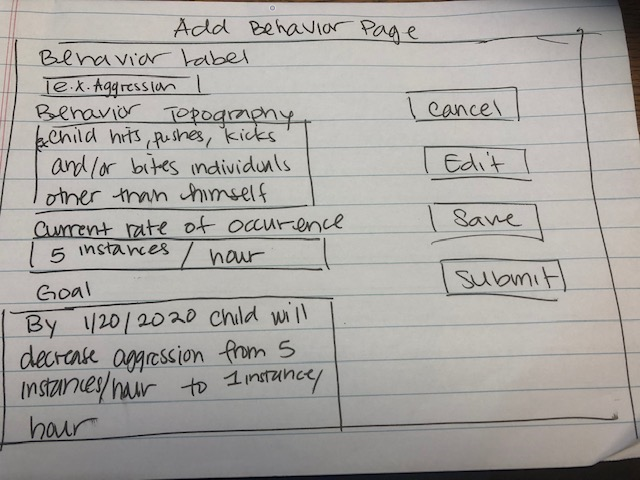 Add Behavior Page
Behavior Label
e.x. Aggression
Behavior Topography
Child hits, pushes, kicks
and/or bites individuals
other than himself
Current rate of occurrence
5 instances / hour
Goal
By 1/20/2020 child will
decrease aggression from 5
instances/hour to 1 instance/
hour
Cancel
Edit
Save
Submit